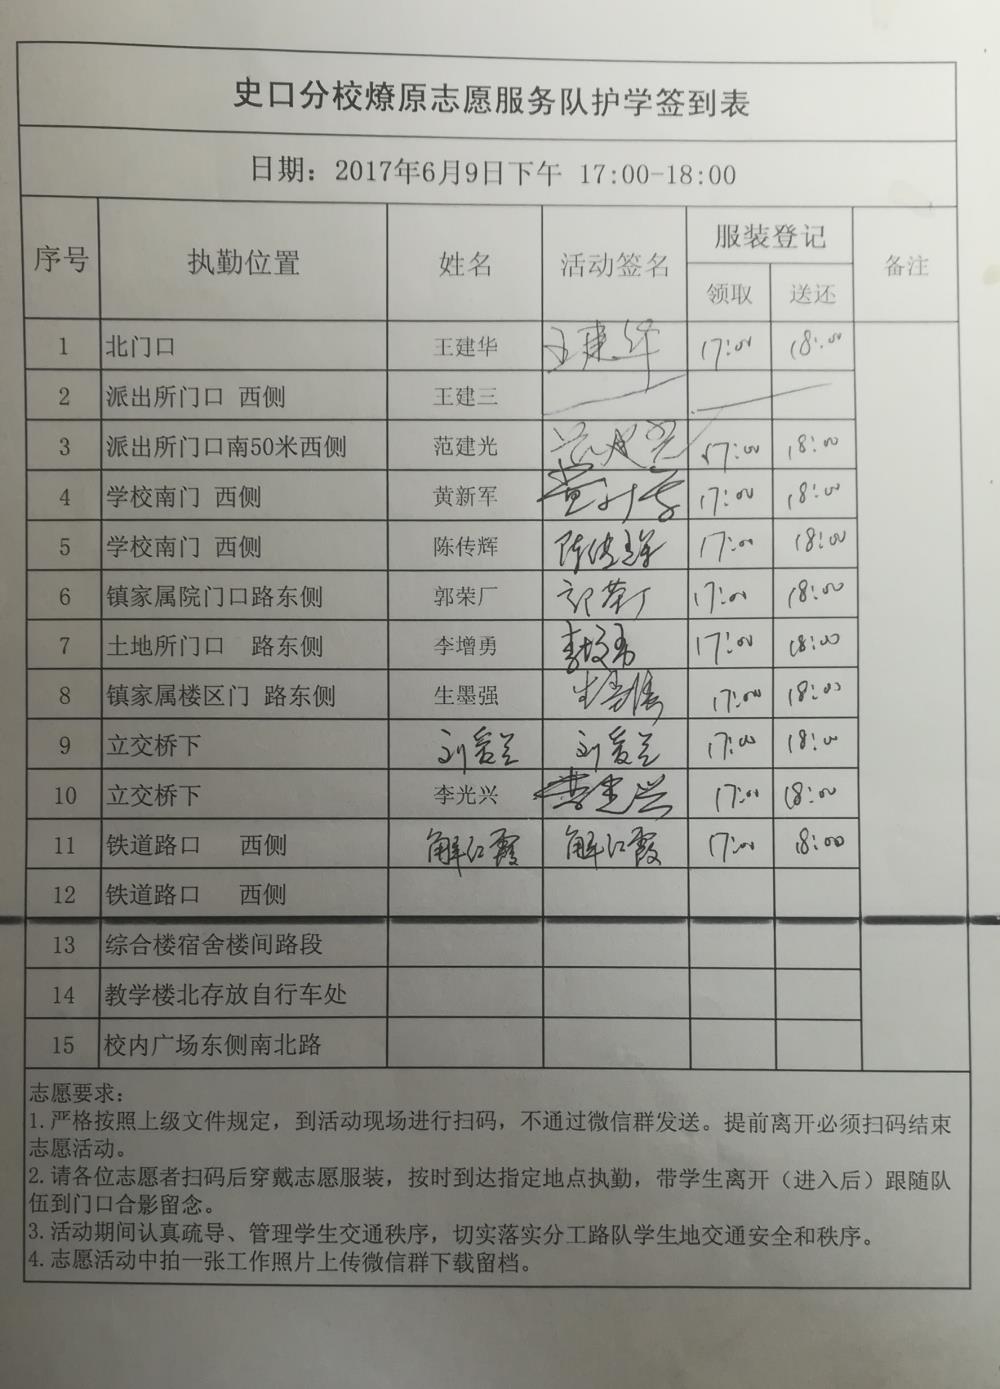 史口分校燎原志愿服务队护学签到表
日期：2017年6月9日下午 17:00-18:00
序号 执勤位置 姓名 活动签名 服装登记 备注
领取 送还
1 北门口 王建华 王建华 17:00 18:00
2 派出所门口 西侧 王建三
3 派出所门口南50米西侧 范建光 17:00 18:00
4 学校南门 西侧 黄新军 17:00 18:00
5 学校南门 西侧 陈传辉 陈传辉 17:00 18:00
6 镇家属院门口路东侧 郭荣厂 郭荣厂 17:00 18:00
7 土地所门口 路东侧 李增勇 李增勇 17:00 18:00
8 镇家属楼区门 路东侧 生墨强 生墨强 17:00 18:00
9 立交桥下 刘爱兰 刘爱兰 17:00 18:00
10 立交桥下 李光兴 17:00 18:00
11 铁道路口 西侧 解红霞 解红霞 17:00 18:00
12 铁道路口 西侧
13 综合楼宿舍楼间路段
14 教学楼北存放自行车处
15 校内广场东侧南北路
志愿要求：
1.严格按照上级文件规定，到活动现场进行扫码，不通过微信群发送。提前离开必须扫码结束
志愿活动。
2.请各位志愿者扫码后穿戴志愿服装，按时到达指定地点执勤，带学生离开（进入后）跟随队
伍到门口合影留念。
3.活动期间认真疏导、管理学生交通秩序，切实落实分工路队学生地交通安全和秩序。
4.志愿活动中拍一张工作照片上传微信群下载留档。